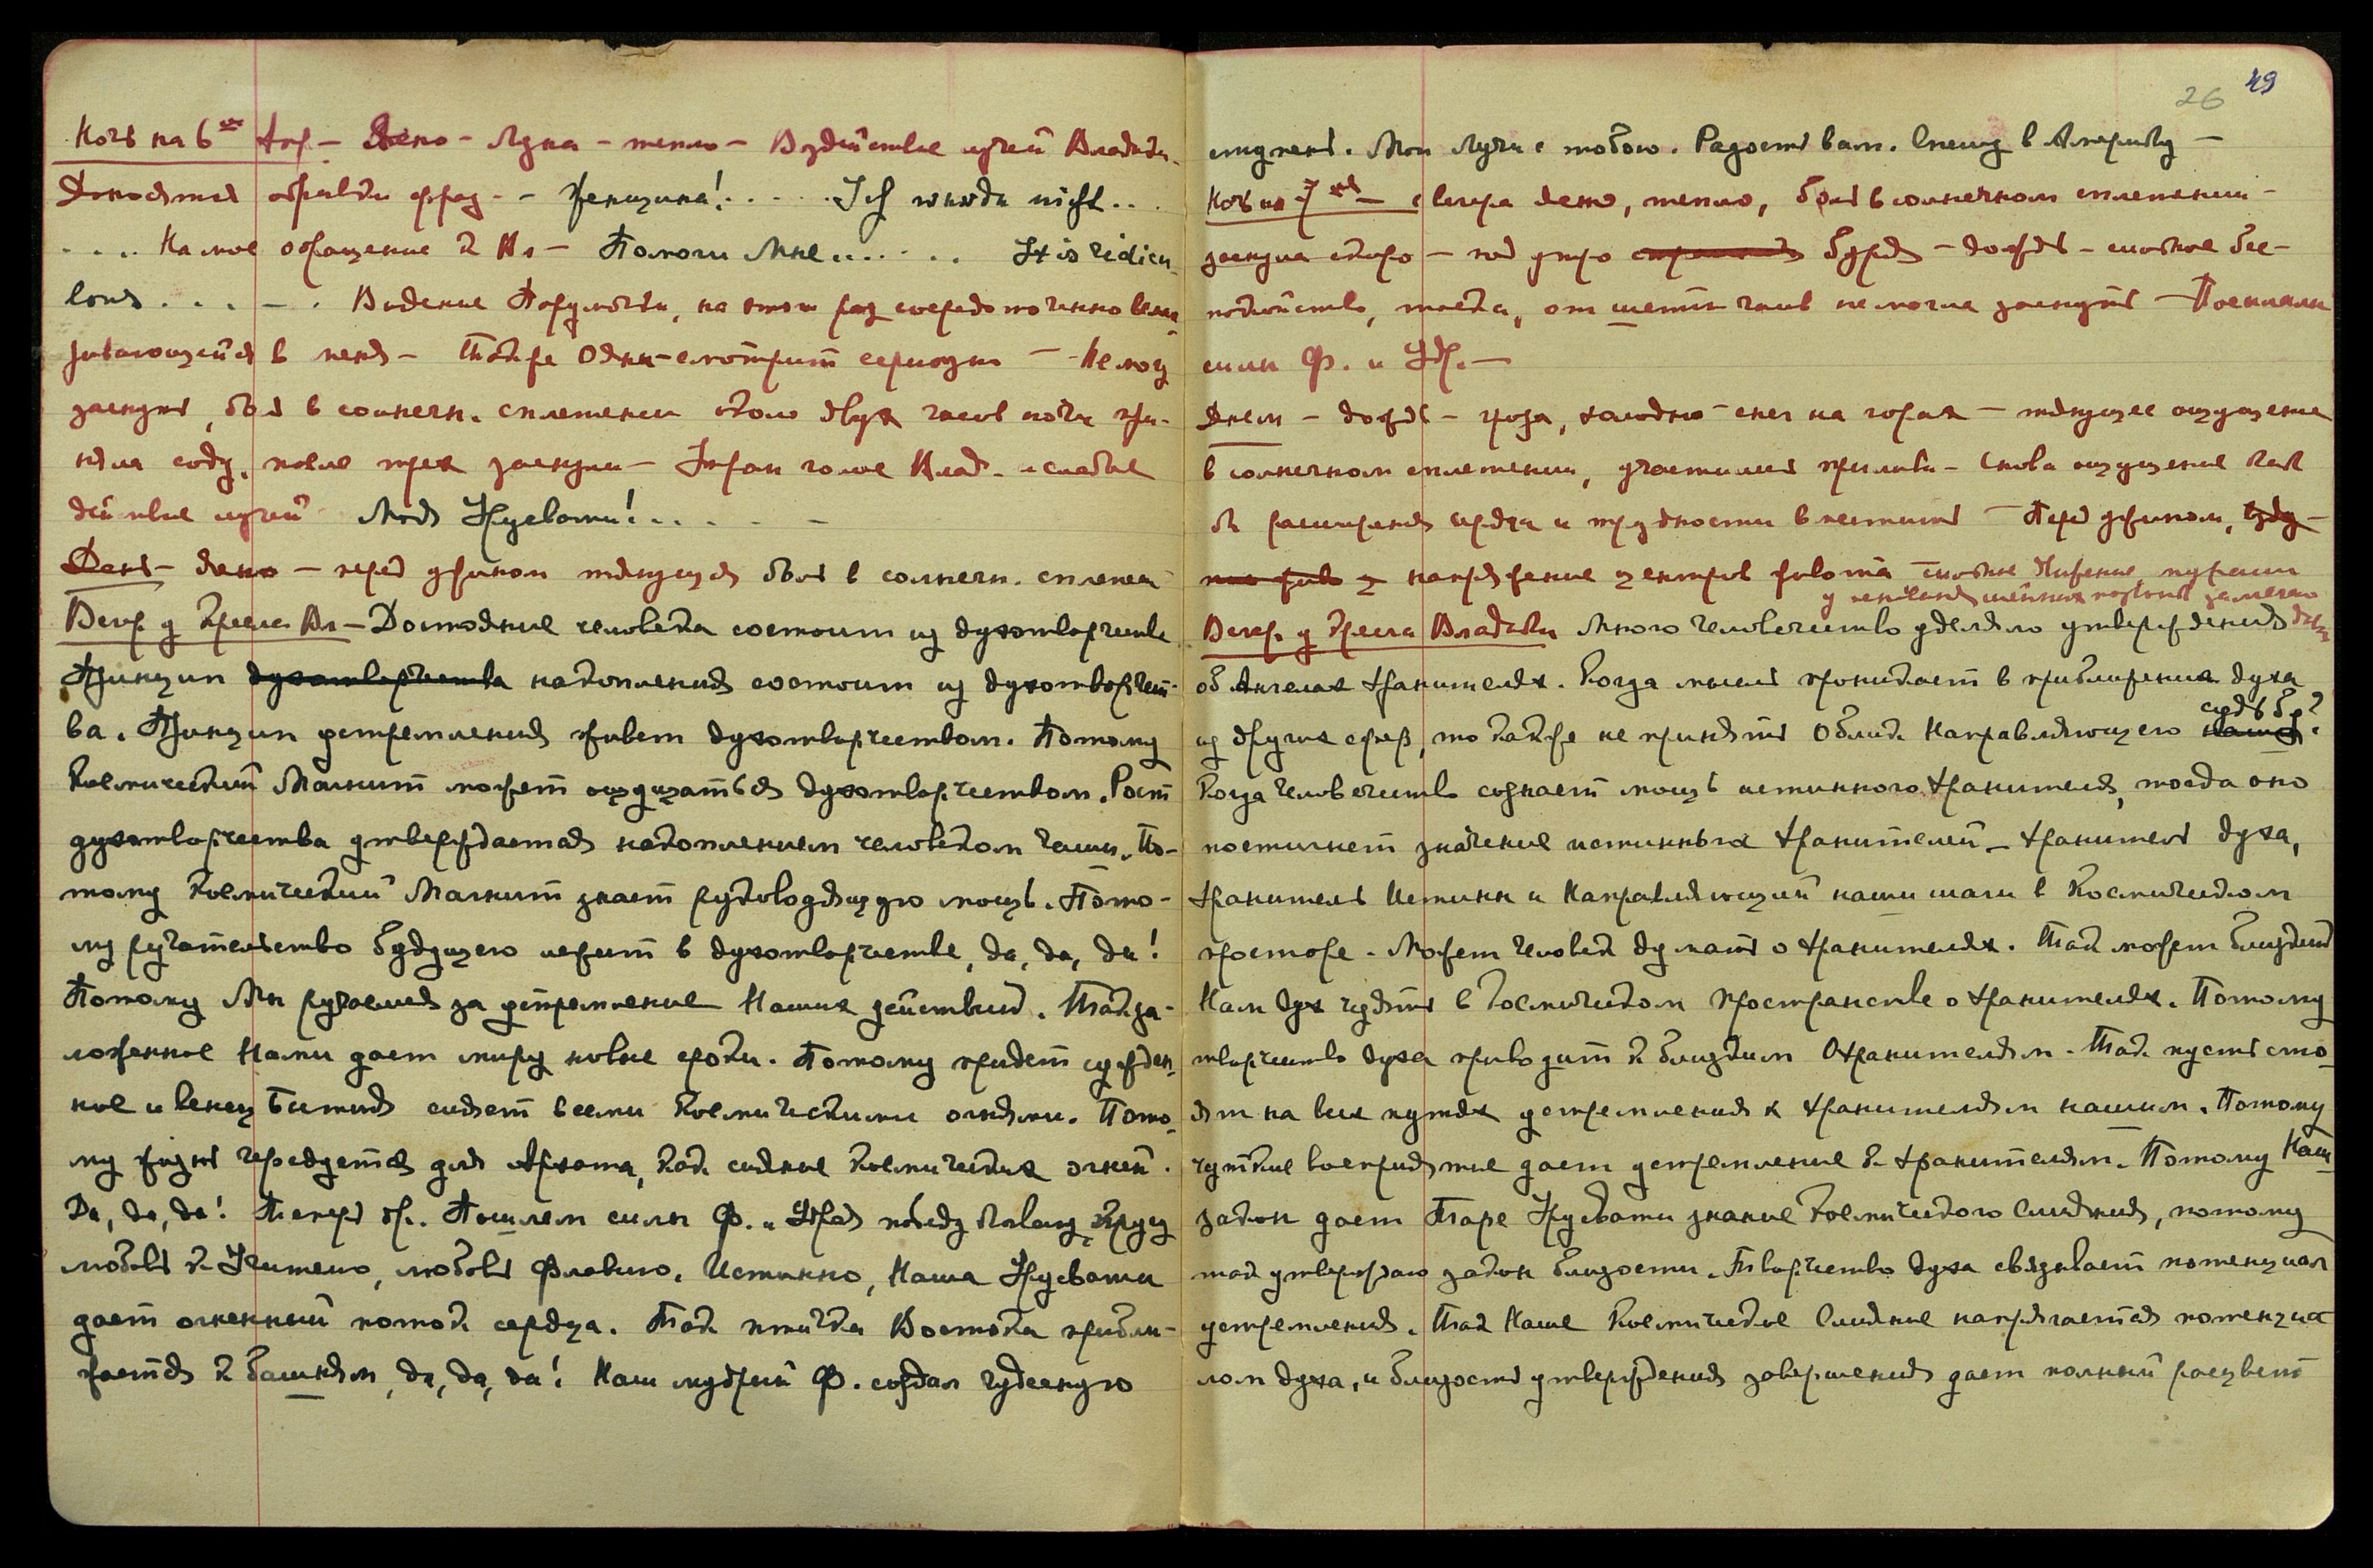 Ночь на 6ое Апр. – Ясно – Луна – тепло – Воздействие лучей Владыки.
Доносятся обрывки фраз – – Женщина! . . . . . Ich wurde nicht . .
. . . . На мое обращение к Вл – Помоги Мне . . . . . . It is ridicu-
lous . . . – . Видение Порумычи, на этот раз сосредоточенно вгля-
дывающийся в меня – Также Один – смотрит серьезно – Не могу
заснуть, боль в солнечн. сплетении около двух часов ночи при-
няла соду, после трех заснула – Утром голос Влад. и слабые
действие лучей Моя Урусвати! . . . . . –
День – ясно – перед ужином тянущая боль в солнечн. сплетен
Вечер. у Кресла Вл – Достояние человека состоит из духотворчества
Принцип духотворчества накопления состоит из духотворчест-
ва. Принцип устремления живет духотворчеством. Потому
Космический Магнит может ощущаться духотворчеством. Рост
духотворчества утверждается накоплением человеком чаши. По-
тому Космический Магнит знает руководящую мощь. Пото-
му ручательство будущего лежит в духотворчестве, да, да, да!
Потому Мы ручаемся за устремление Наших действий. Так за-
ложенное Нами дает миру новые сроки. Потому придет сужден-
ное и венец Бытия сияет всеми Космическими огнями. Пото-
му жизнь чередуется для Архата, как сияние Космических огней.
Да, да, да! Теперь др. Пошлем силы Ф. и Удрая победу
любовь к Учителю, любовь Флавию. Истинно, Наша Урусвати
дает огненный поток сердца. Так птичка Востока прибли-
жается к башням, да, да, да! Наш мудрый Ф. создал чудесную
26 49
студент. Мои Лучи с тобою. Радость вам. Спешу в Америку –
Ночь на 7ое – с вечера ясно, тепло, боль в солнечном сплетении –
заснула скоро – под утро буря – дождь – сильное бес-
покойство, тоска, от шести часов не могла заснуть – Посылала
силы Ф. и Удр. –
Днем – дождь – гроза, холодно – снег на горах – тянущее ощущение
в солнечном сплетении, участились приливы – снова ощущение как
бы расширения сердца и трудности вместить – Перед ужином,
напряжение центров живота сильное жжение
Вечер. у Кресла Владыки Много человечество уделяло утверждения
об Ангелах Хранителях. Когда мысль проникает в приближения духа
из других сфер, то как же не принять Облик Направляющего судьбу?
Когда человечество сознает мощь истинного Хранителя, тогда оно
постигнет значение истинных Хранителей – Хранитель духа,
Хранитель Истины и Направляющий наши шаги в Космическом
просторе. Может человек думать о Хранителях. Так может близкий
Нам дух чуять в Космическом пространстве о Хранителях. Потому
творчество духа приводит к близким Охранителям. Так пусть сто-
ят на всех путях устремления к Хранителям нашим. Потому
чуткие восприятие дает устремление к Хранителям. Потому Наш
закон дает Таре Урусвати знание Космического Слияния, потому
так утверждаю закон близости. Творчество духа связывает потенциал
устремления. Так Наше Космическое Слияние напрягается потенциа-
лом духа, и близость утверждения завершения дает полный расцвет